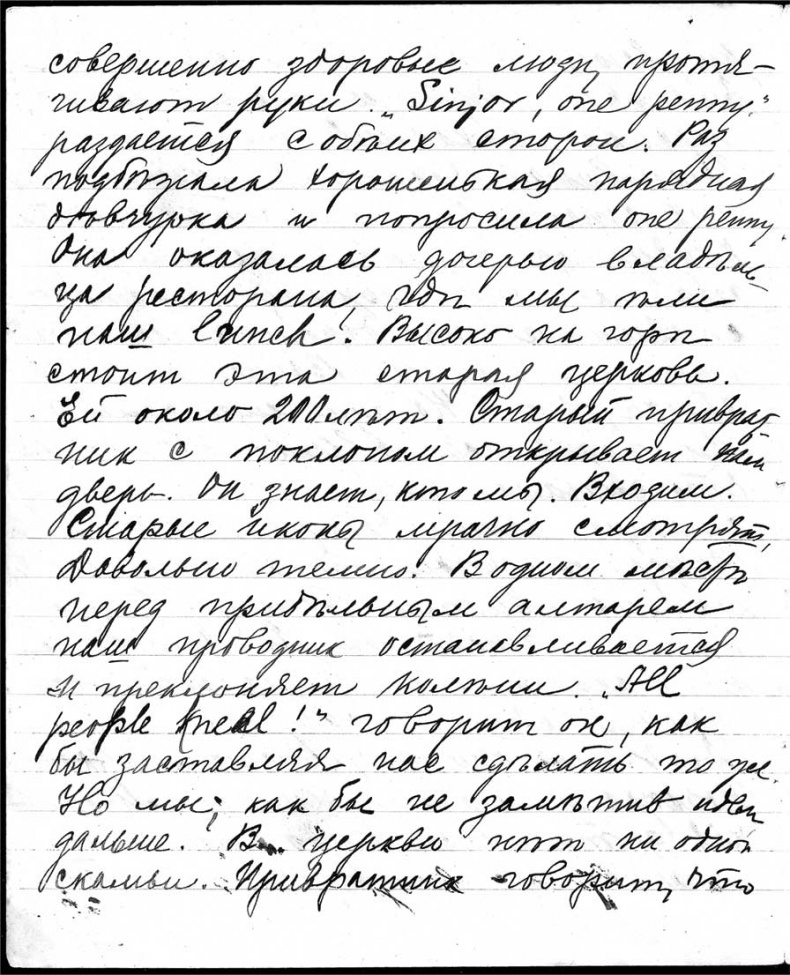 совершенно здоровые люди, протя-
гивают руки. „Sinjor, one penny."
раздается с обоих сторон. Раз
подбѣжала хорошенькая нарядная
дѣвчурка и попросила one penny.
Она оказалась дочерью владѣль-
ца ресторана, гдѣ мы ѣли
наш lunch! Высоко на горѣ
стоит эта старая церковь.
Ей около 200 лѣт. Старый приврат
ник с поклоном открывает нам
дверь. Он знает, кто мы. Входим.
Старые иконы мрачно смотрят,
Довольно темно. В одном мѣстѣ
перед придѣльным алтарем
наш проводник останавливается
и преклоняет колѣни. „All
people kneel!" говорит он, как
бы заставляя нас сдѣлать то же.
Но мы, как бы не замѣтив идем
дальше. В церкви нѣт ни одной
скамьи. Привратник говорит, что